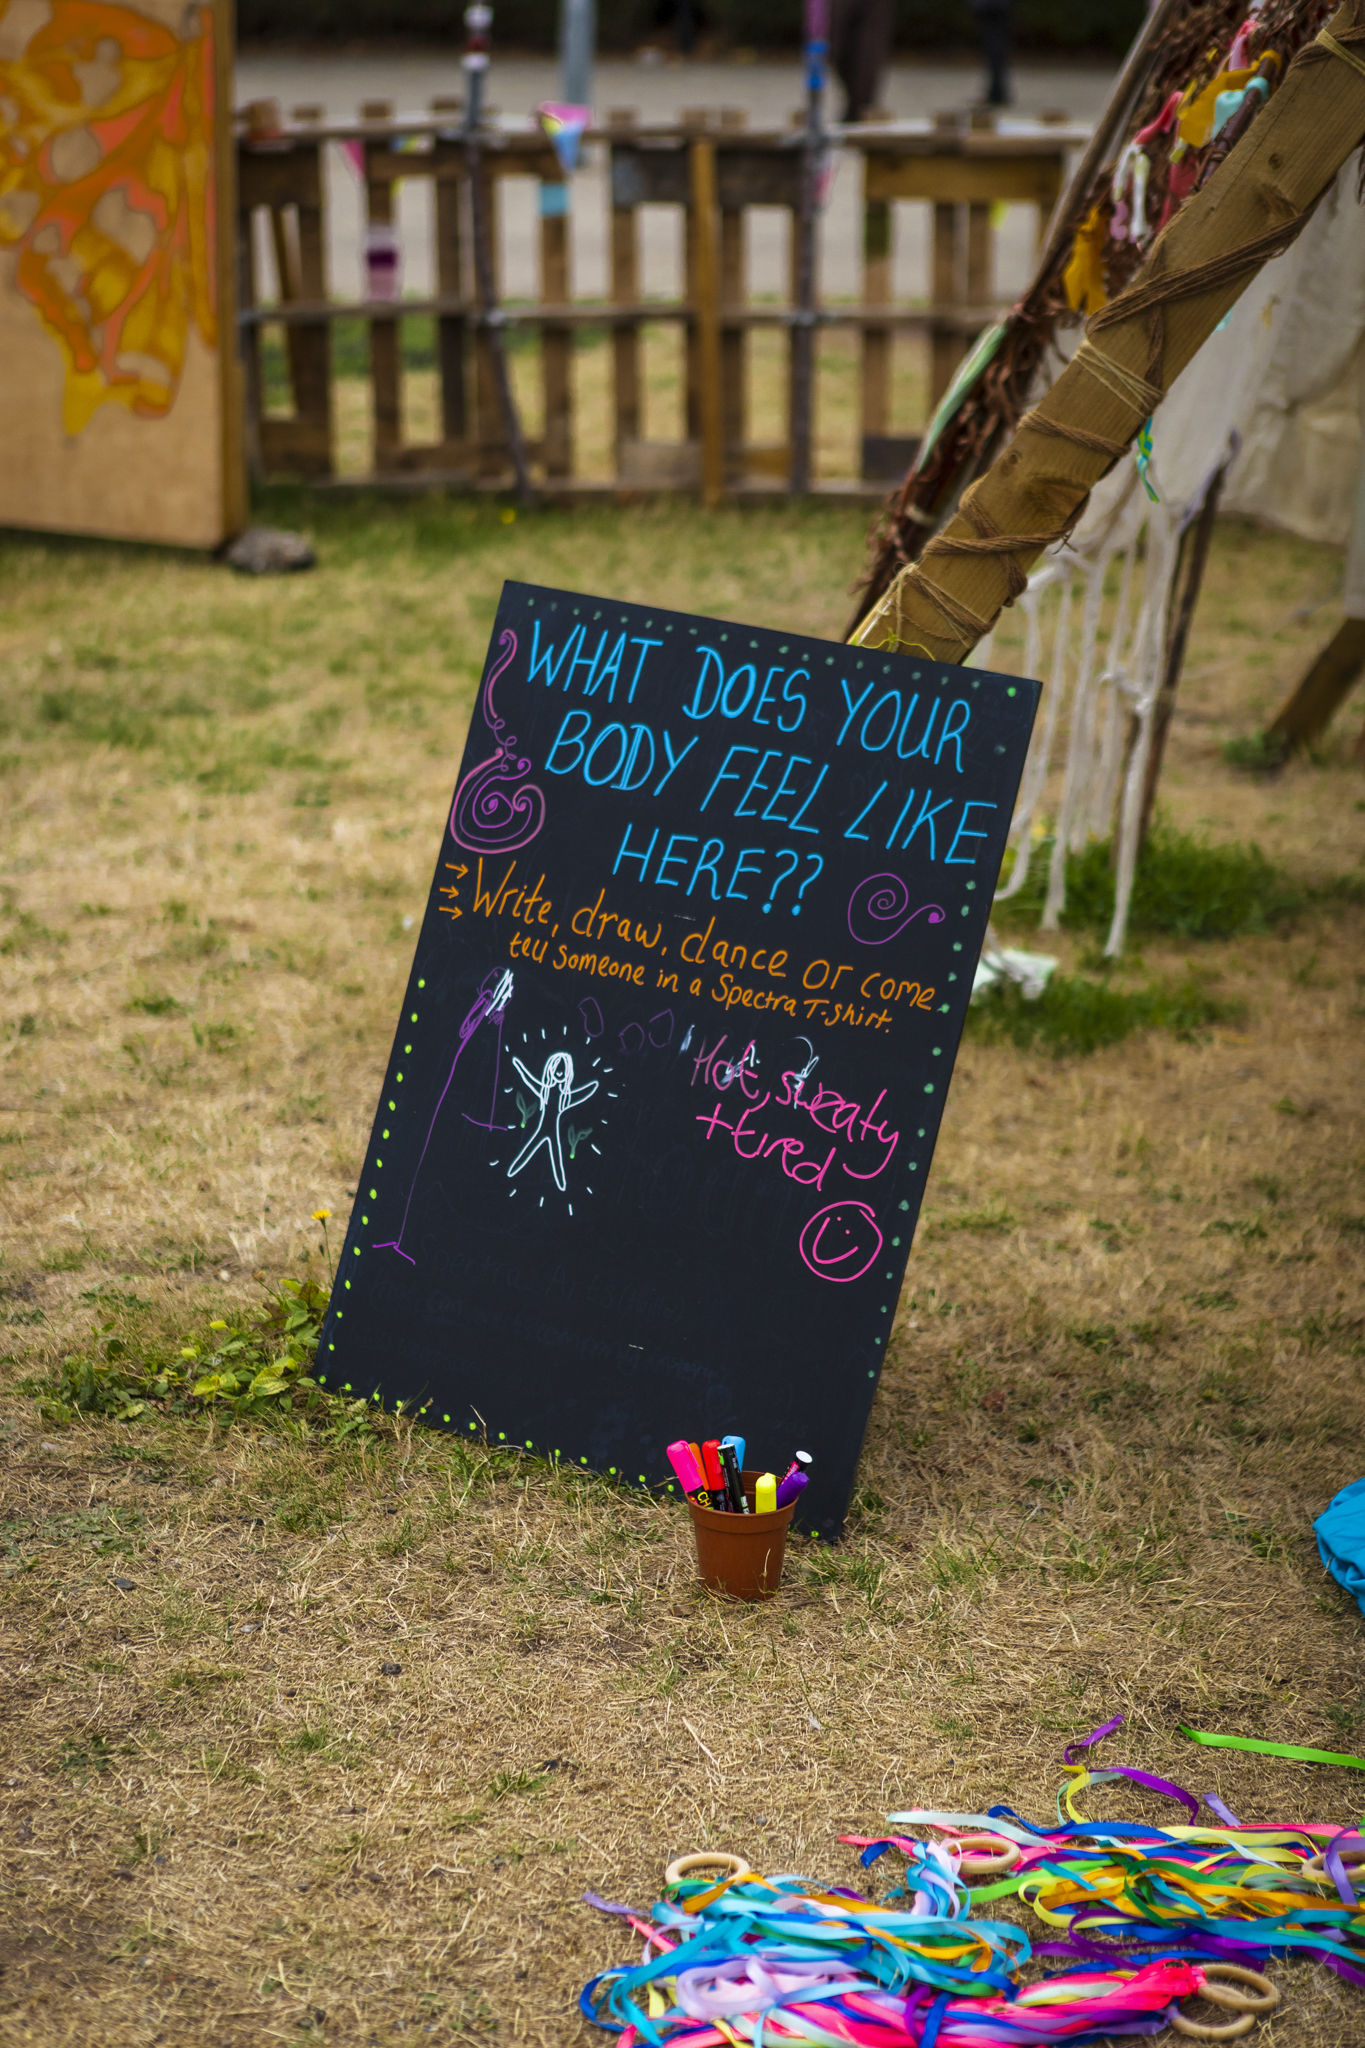 WHAT DOES YOUR
BODY FEEL LIKE
HERE??
→ Write, draw, dance or come
tell someone in a Spectra T-shirt.
Hot, sweaty
+tired
Spectra Arts